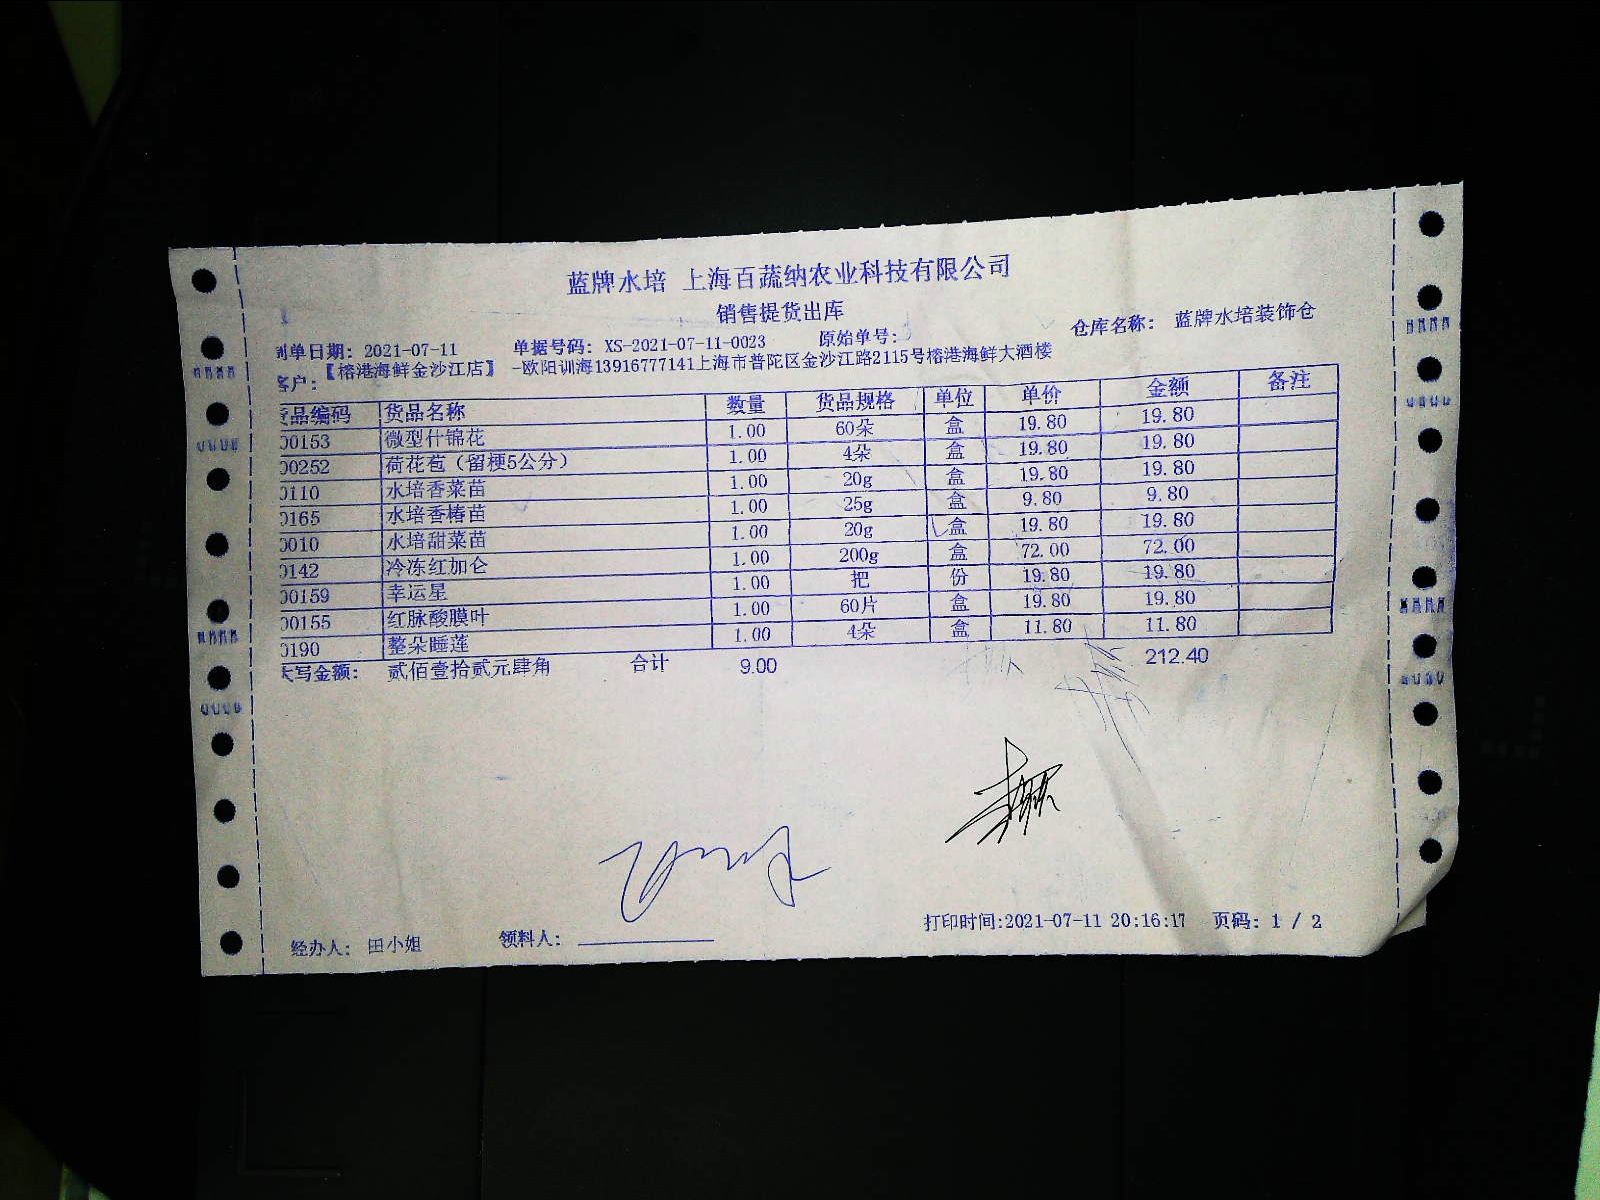 蓝牌水培 上海百蔬纳农业科技有限公司
销售提货出库
制单日期: 2021-07-11 单据号码: XS-2021-07-11-0023 原始单号: 仓库名称: 蓝牌水培装饰仓
客户: 【榕港海鲜金沙江店】 -欧阳训海13916777141上海市普陀区金沙江路2115号榕港海鲜大酒楼
货品编码 货品名称 数量 货品规格 单位 单价 金额 备注
00153 微型什锦花 1.00 60朵 盒 19.80 19.80
00252 荷花苞（留梗5公分） 1.00 4朵 盒 19.80 19.80
0110 水培香菜苗 1.00 20g 盒 19.80 19.80
0165 水培香椿苗 1.00 25g 盒 9.80 9.80
0010 水培甜菜苗 1.00 20g 盒 19.80 19.80
0142 冷冻红加仑 1.00 200g 盒 72.00 72.00
00159 幸运星 1.00 把 份 19.80 19.80
00155 红脉酸膜叶 1.00 60片 盒 19.80 19.80
0190 整朵睡莲 1.00 4朵 盒 11.80 11.80
大写金额: 贰佰壹拾贰元肆角 合计 9.00 212.40
打印时间:2021-07-11 20:16:17 页码: 1 / 2
经办人: 田小姐 领料人: